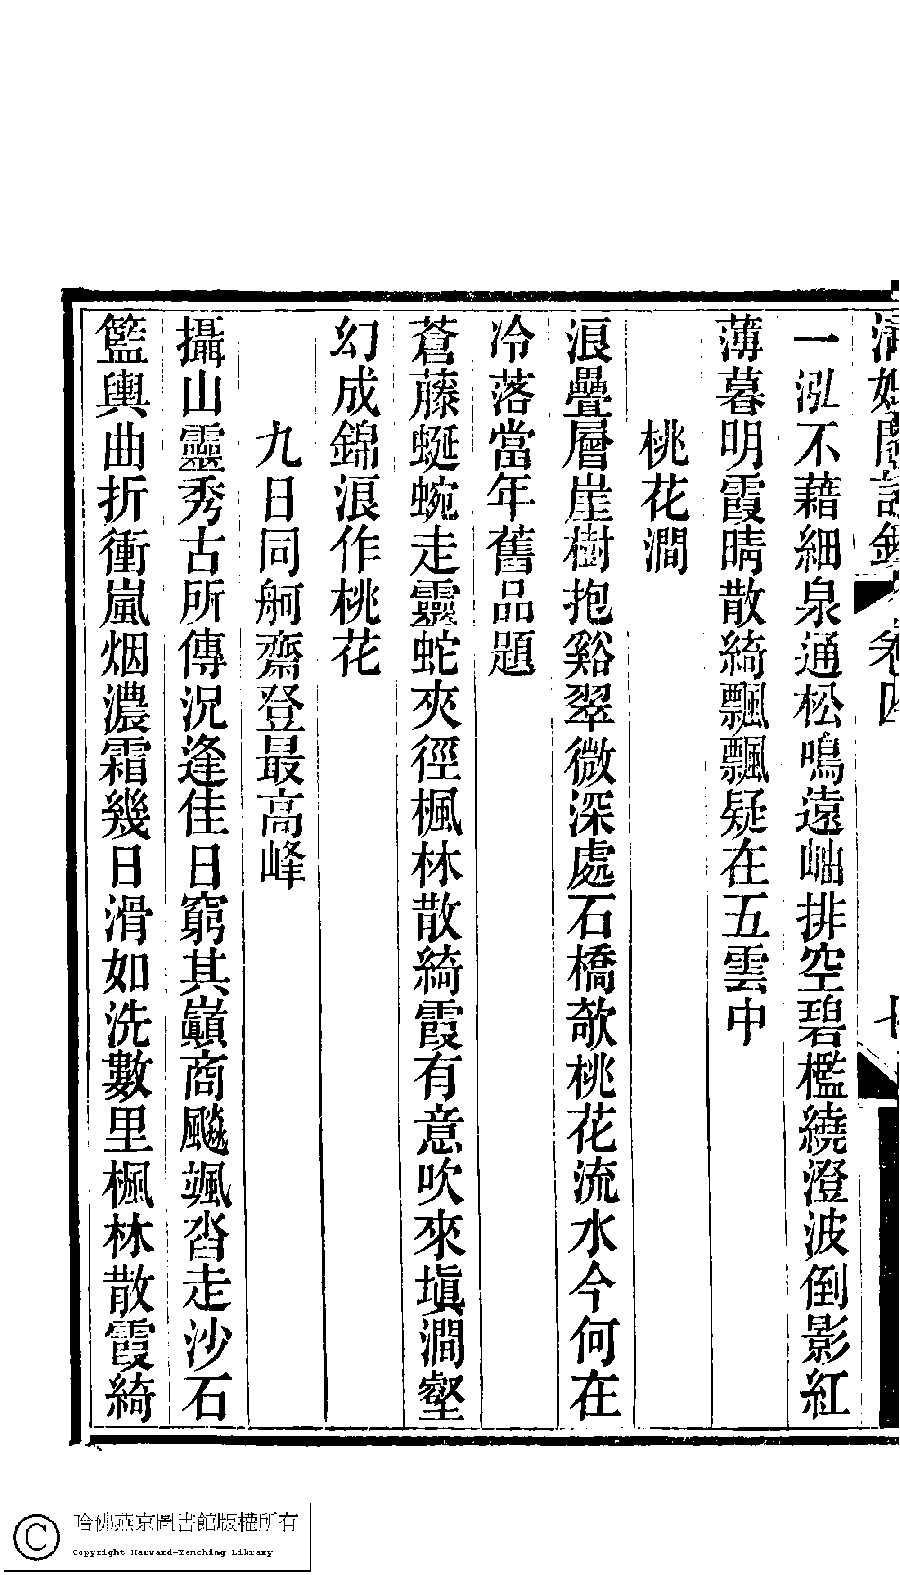 卷四
一泓不藉細泉通松鳴遠岫排空碧檻繞澄波倒影紅
薄暮明霞晴散綺飄飄疑在五雲中
桃花澗
浪疊層崖樹抱谿翠微深處石橋欹桃花流水今何在
冷落當年舊品題
蒼藤蜒蜿走靈蛇夾徑楓林散綺霞有意吹來塡澗壑
幻成錦浪作桃花
九日同舸齋登最高峰
攝山靈秀古所傳況逢佳日窮其巔商飈颯沓走沙石
籃輿曲折衝嵐烟濃霜幾日滑如洗數里楓林散霞綺
哈佛燕京圖書館版權所有
Copyright Harvard-Yenching Library